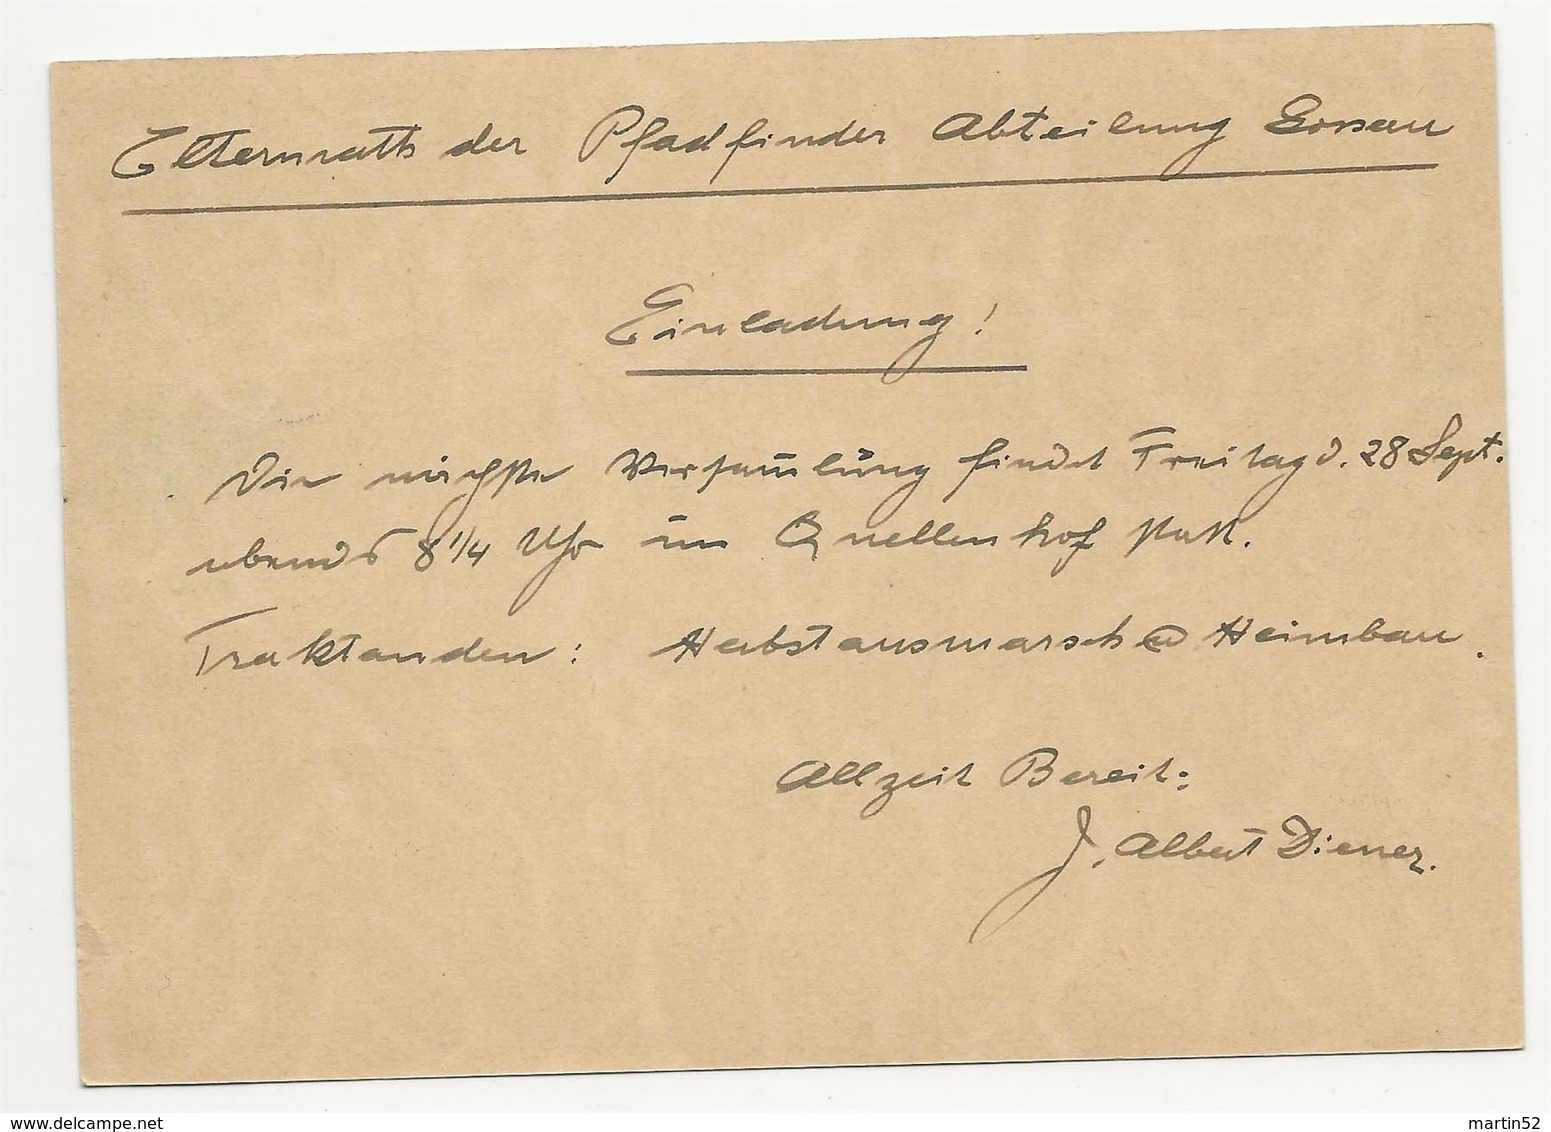 Elternrath der Pfadfinder Abteilung Gossau
Einladung!
Die nächste Versam̅lung findet Freitag d. 28 Sept.
abends 8 1/4 Uhr im Quellenhof statt.
Traktanden: Herbstausmarsch & Heimbau.
Allzeit Bereit:
J. Albert Diener.
martin52